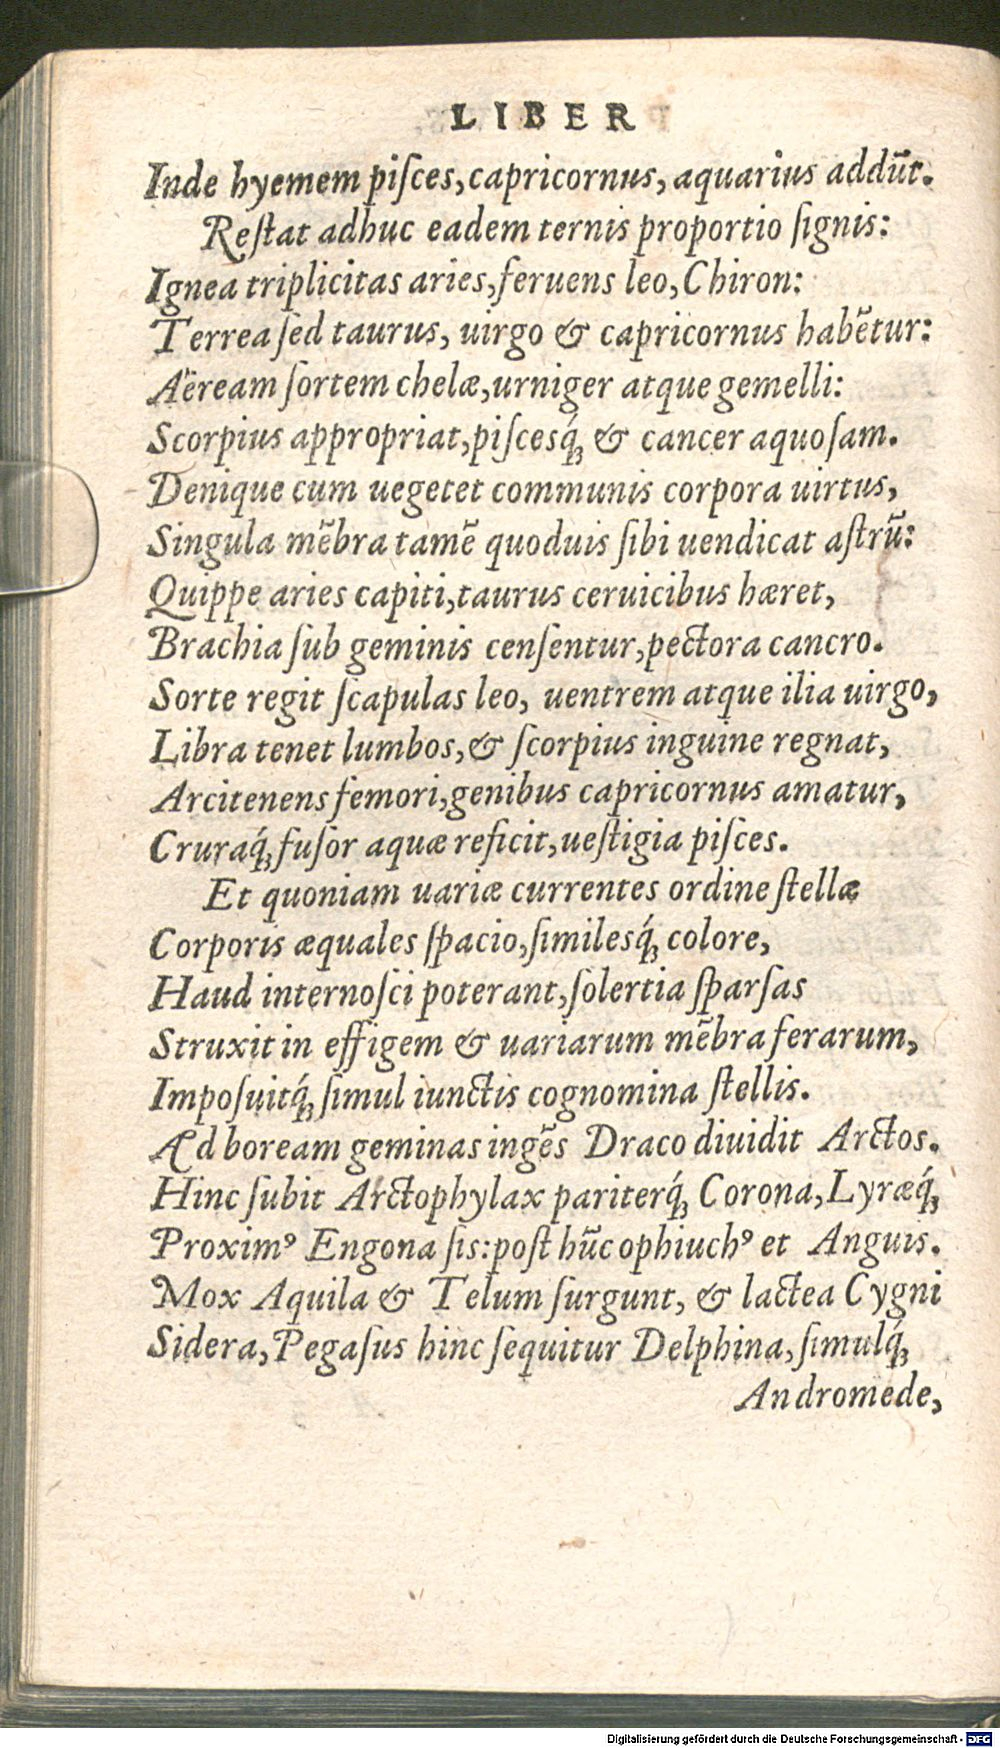 LIBER
Inde hyemem piſces, capricornus, aquarius addũt.
Reſtat adhuc eadem ternis proportio ſignis:
Ignea triplicitas aries, feruens leo, Chiron:
Terrea ſed taurus, uirgo & capricornus habẽtur:
Aëream ſortem chelæ, urniger atque gemelli:
Scorpius appropriat, piſcesq́ꝫ & cancer aquoſam.
Denique cum uegetet communis corpora uirtus,
Singula mẽbra tamẽ quoduis ſibi uendicat aſtrũ:
Quippe aries capiti, taurus ceruicibus hæret,
Brachia ſub geminis cenſentur, pectora cancro.
Sorte regit ſcapulas leo, uentrem atque ilia uirgo,
Libra tenet lumbos, & ſcorpius inguine regnat,
Arcitenens femori, genibus capricornus amatur,
Cruraq́ꝫ fuſor aquæ reficit, ueſtigia piſces.
Et quoniam uariæ currentes ordine ſtellæ
Corporis æquales ſpacio, ſimilesq́ꝫ colore,
Haud internoſci poterant, ſolertia ſparſas
Struxit in effigem & uariarum mẽbra ferarum,
Impoſuitq́ꝫ ſimul iunctis cognomina ſtellis.
Ad boream geminas ingẽs Draco diuidit Arctos.
Hinc ſubit Arctophylax pariterq́ꝫ Corona, Lyræq́ꝫ
Proximꝰ Engona ſis: poſt hũc ophiuchꝰ et Anguis.
Mox Aquila & Telum ſurgunt, & lactea Cygni
Sidera, Pegaſus hinc ſequitur Delphina, ſimulq́ꝫ
Andromede,
Digitalisierung gefördert durch die Deutsche Forschungsgemeinschaft - DFG